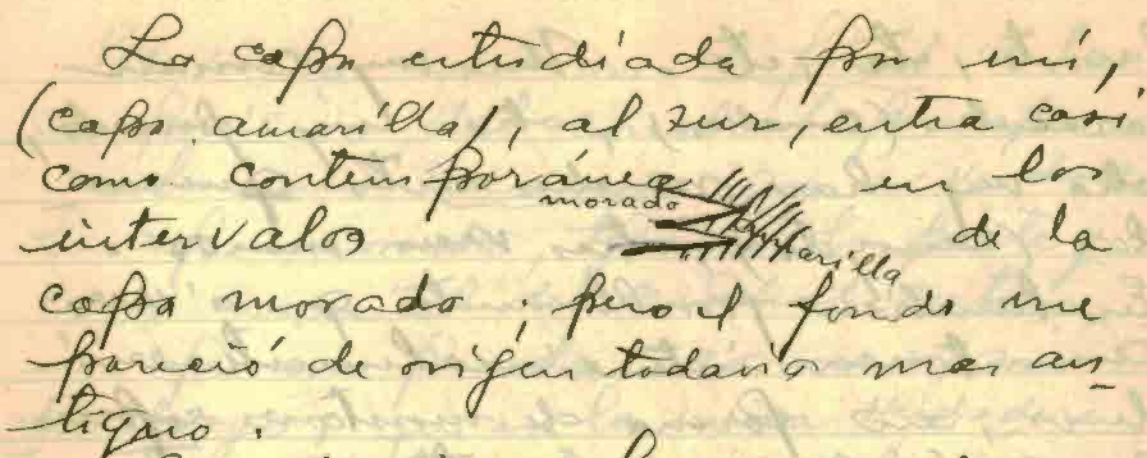 La capa estudiada por mí,
(capa amarilla), al sur, entra casi
como contemporánea en los
morado
intervalos de la
amarilla
capa morada; pero el fondo me
pareció de origen todavía mas an-
tiguo.